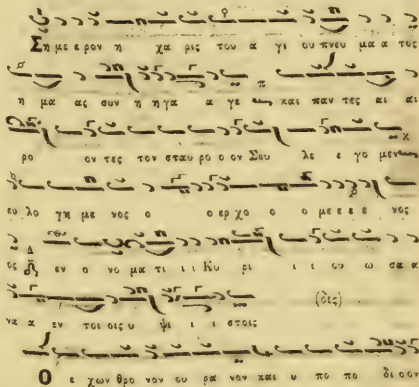 Ση με ε ρον η χα ρις του α γι ου πνευ μα α τος
η μα ας συν η η γα α γε και παν τες αι αι
ρο ον τες τον σταυ ρο ο ον Σου λε ε γο μεν
ευ λο γη με νος ο ο ερ χο ο ο με ε ε ε νος
εν ο νο μα τι ι ι Κυ ρι ι ι ου ω σα α
να α εν τοις οις υ ψι ι ι στοις (δις)
Ο ε χων θρο νον ου ρα νον και υ πο πο δι ο ον